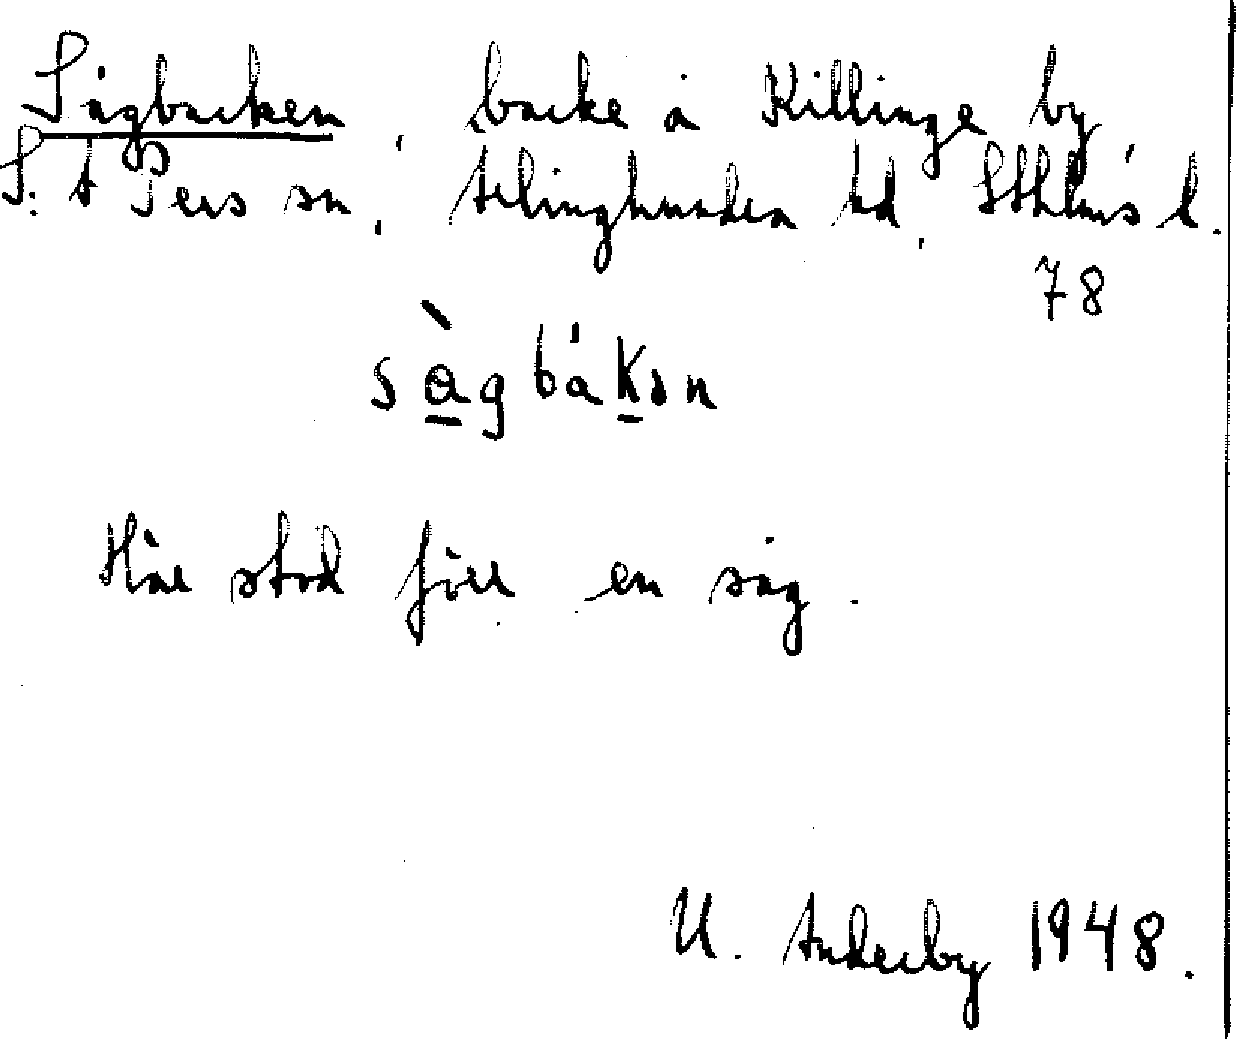 Sågbacken, backe å Killinge by,
S:t Pers sn, Ærlinghundra hd, Sthlms l.
78
sågbàkən
Här stod förr en såg.
U. Anderby 1948.